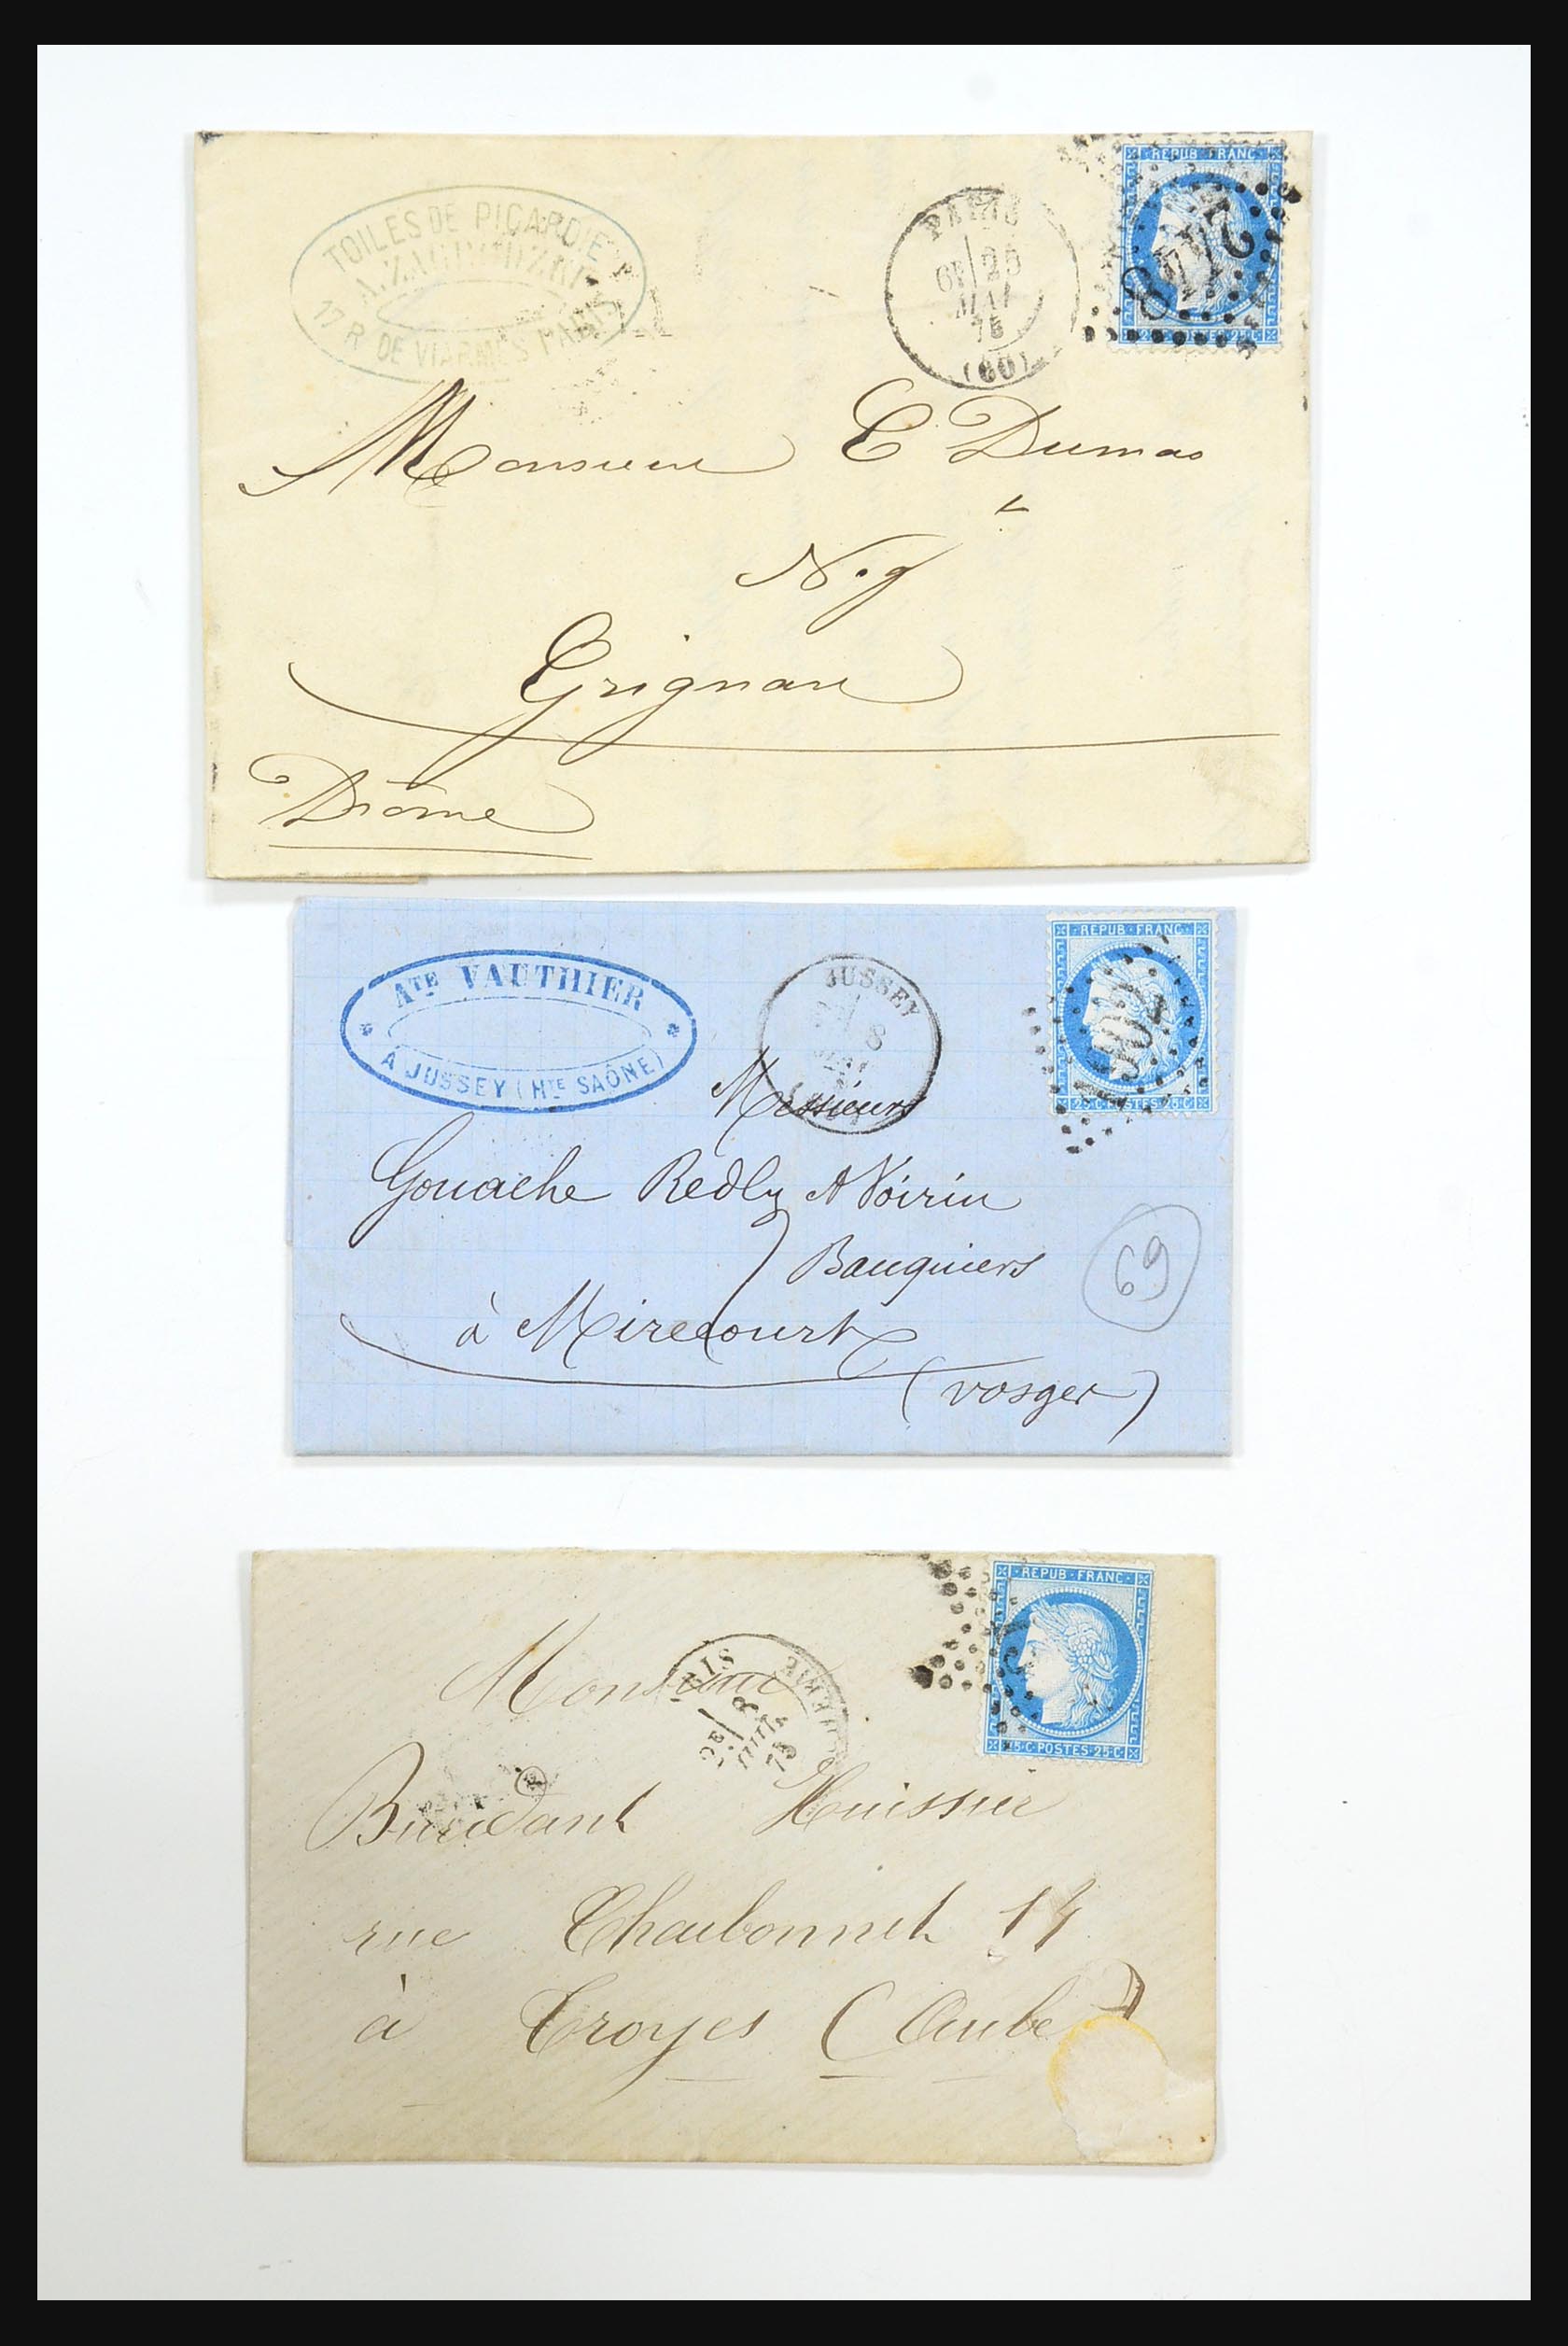 TOILES DE PICARDIE
17 R. DE VIARMES PARIS
PARIS
6E 25
MAI
75
(60)
REPUB FRANC
2448
Monsieur E Dumas
Ng
Grignan
Drôme
ATE VAUTHIER
A JUSSEY (HTE SAÔNE)
JUSSEY
8
REPUB FRANC
25 C POSTES 25 C
Messieurs
Gouache Redly & Voirin
Banquiers
69
à Mirecourt
(Vosges)
REPUB FRANC
25 C POSTES 25 C
2E 8
JUIN
75
Monsieur
Buridant Huissier
rue Charbonnet 14
à Troyes (Aube)